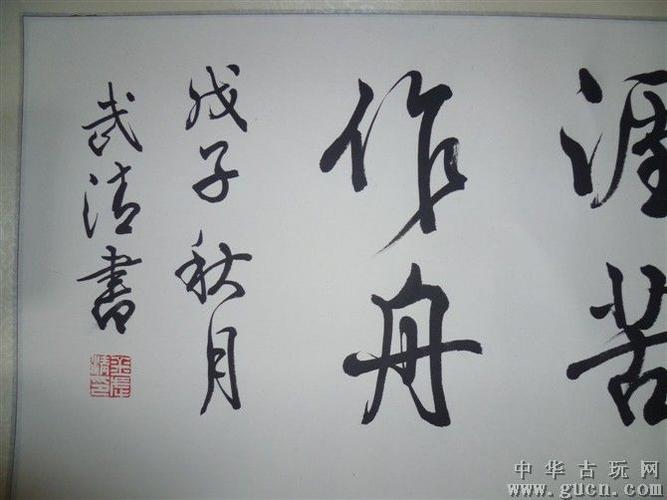 涯苦
作舟
戊子秋月
武清書
中华古玩网
www.gucn.com